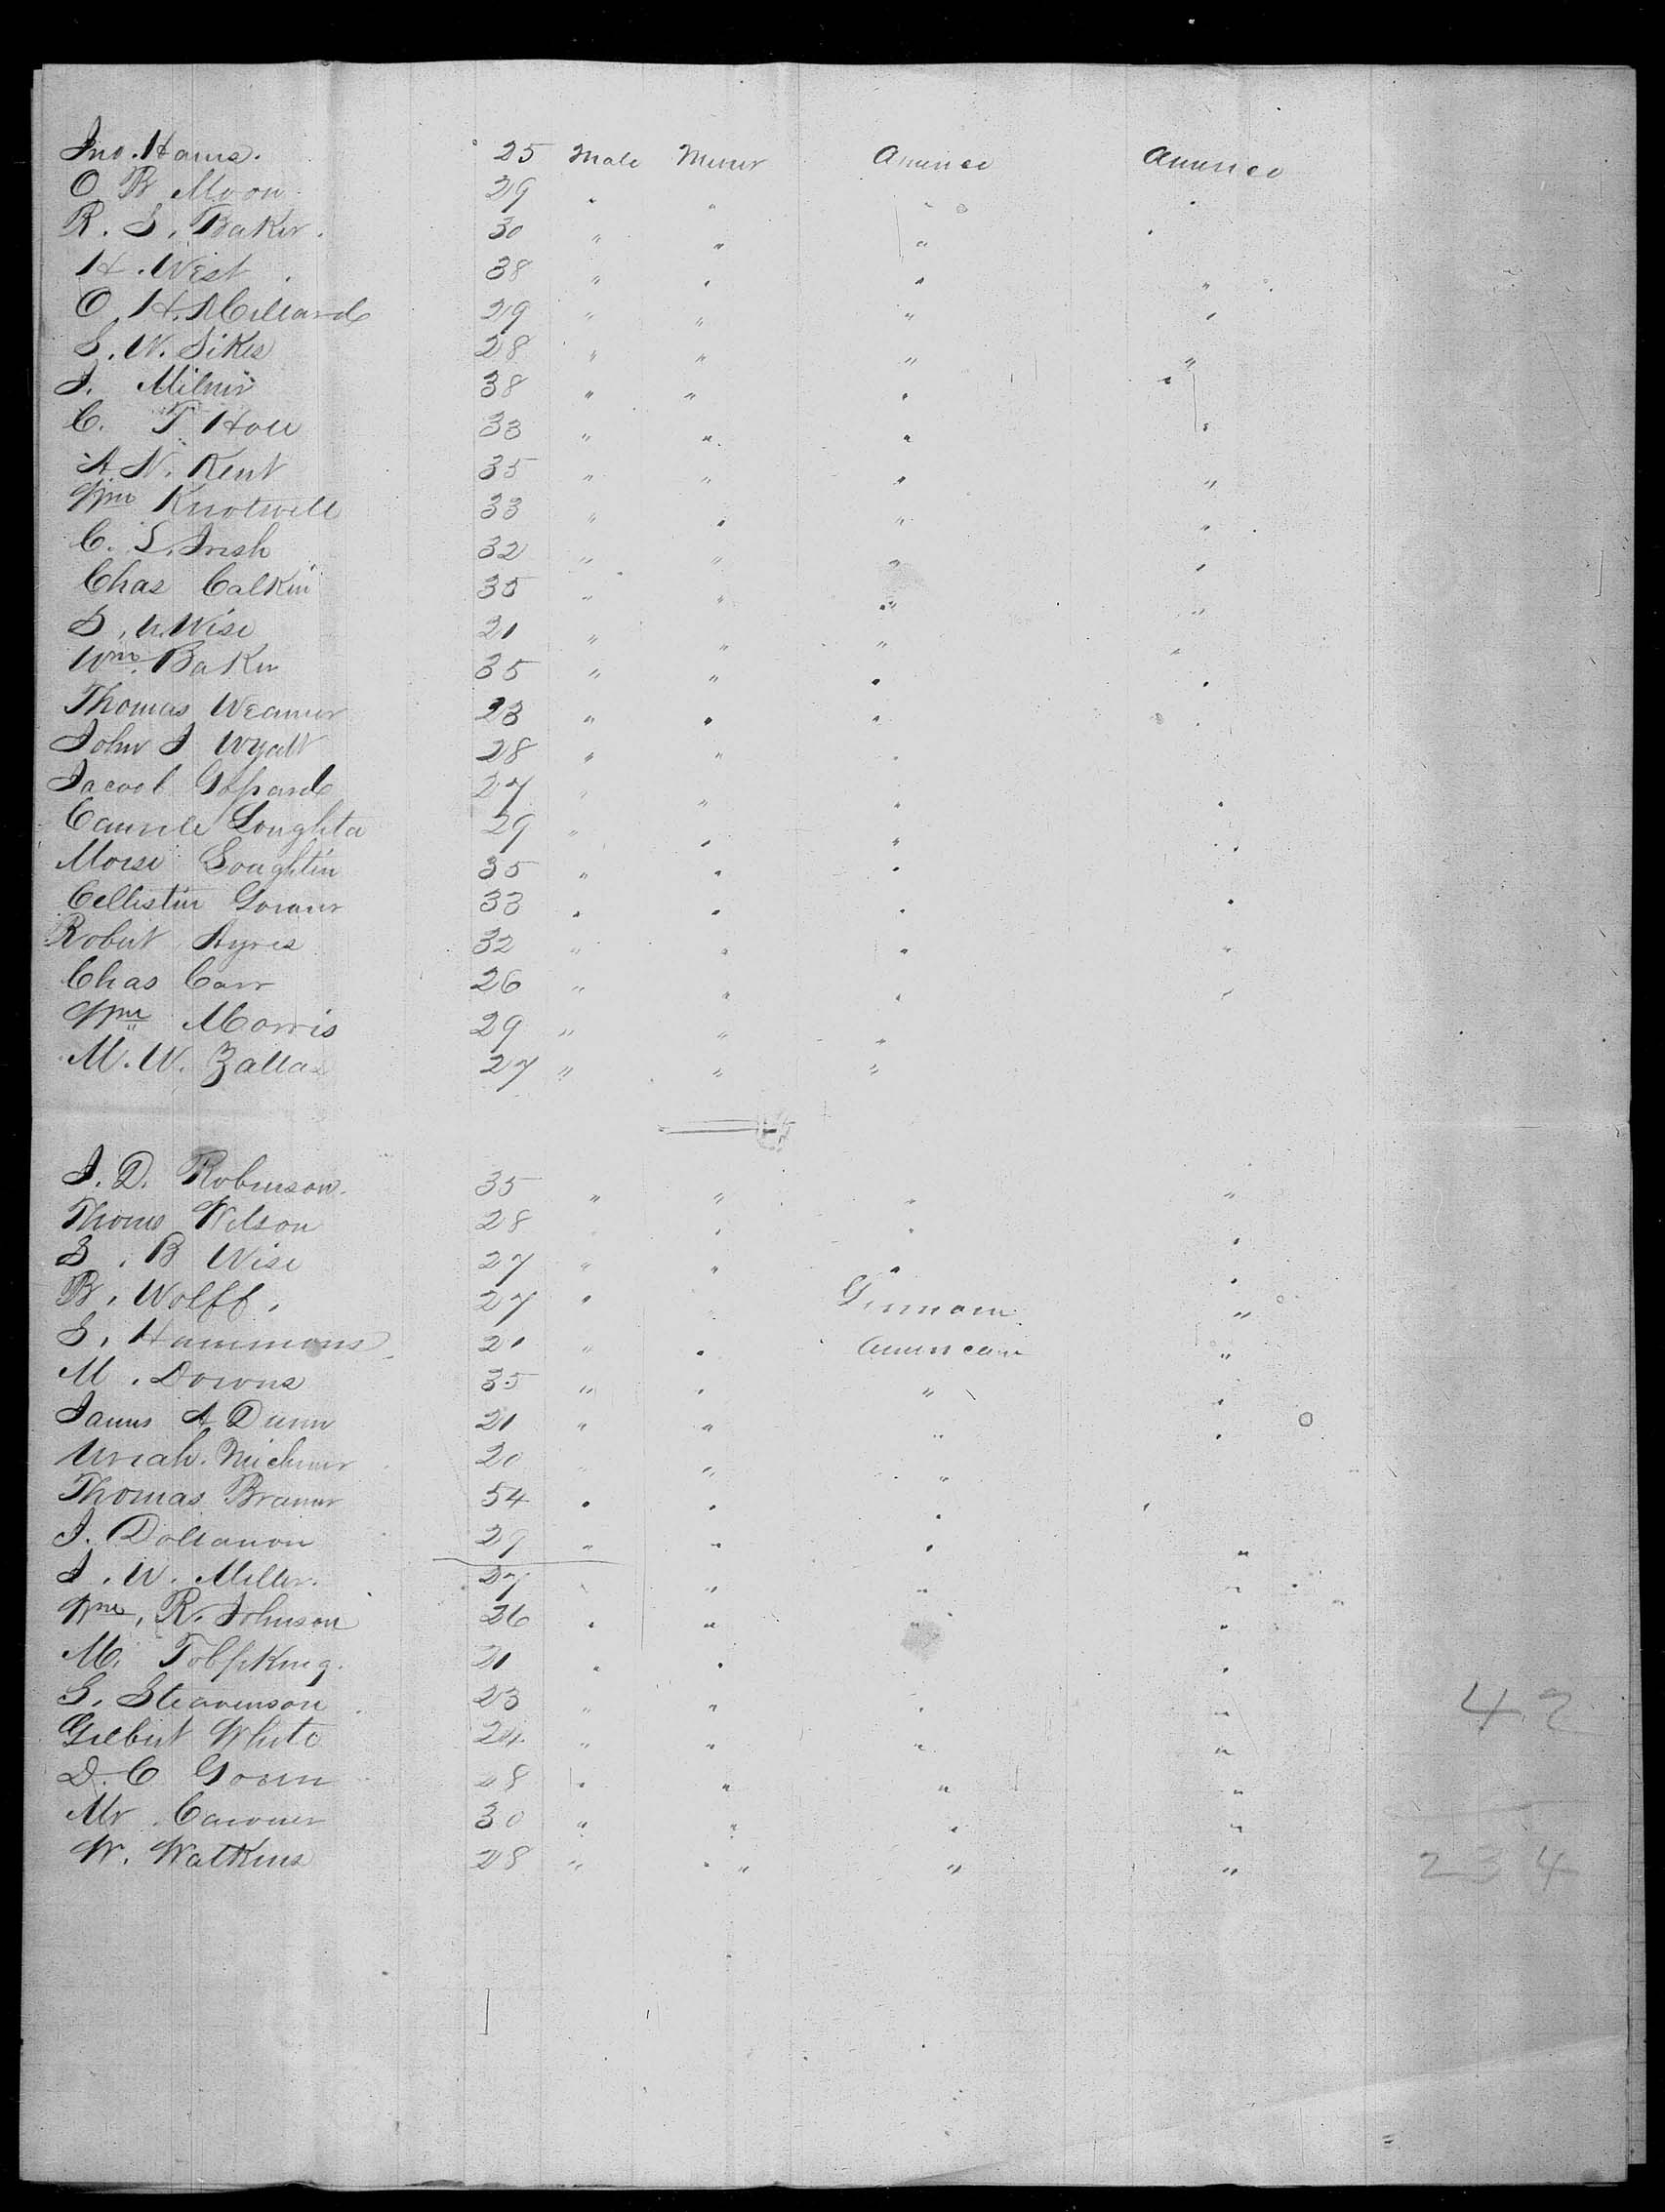 Jno. Hams. 25 Male Miner America America
O B Moon 29 " " " "
R. S. Baker. 30 " " " "
H. West. 38 " " " "
O. H. Millard 29 " " " "
S. W. Sikes 28 " " " "
J. Milner 38 " " " "
C. T Hall 33 " " " "
A. N. Kent 35 " " " "
Wm Knotwell 33 " " " "
C. L. Irish 32 " " " "
Chas Calkin 35 " " " "
S. W. Wise 21 " " " "
Wm. Baker 35 " " " "
Thomas Weamer 23 " " " "
John J Wyatt 28 " " "
Jacool 27 " " " "
Loughta 29 " " " "
Morse Loughtin 35 " " "
Cellistin 33 " " " "
Robert Ayres 32 " " " "
Chas Carr 26 " " " "
Wm Morris 29 " " "
M. W. Zallas 27 " " "
J. D. Robinson. 35 " " " "
Thoms Wilson 28 " " " "
S. B Wise 27 " " " "
B. Wolff. 27 " German "
S. Hammons 21 " " American "
M. Downs 35 " " " "
James A Dunn 21 " " " "
Uriah. Michner 20 " " "
Thomas Braner 54 " " " "
J. Dollanon 29 " " " "
J. W. Miller. 27 " " " "
Wm. R. Johnson 26 " " " "
M. King. 21 " " "
S. Steavenson 23 " " " " 42
Gilbert White 24 " " " "
D. C 28 " " " "
Mr. 30 " " " "
W. Watkins 28 " " " " 234